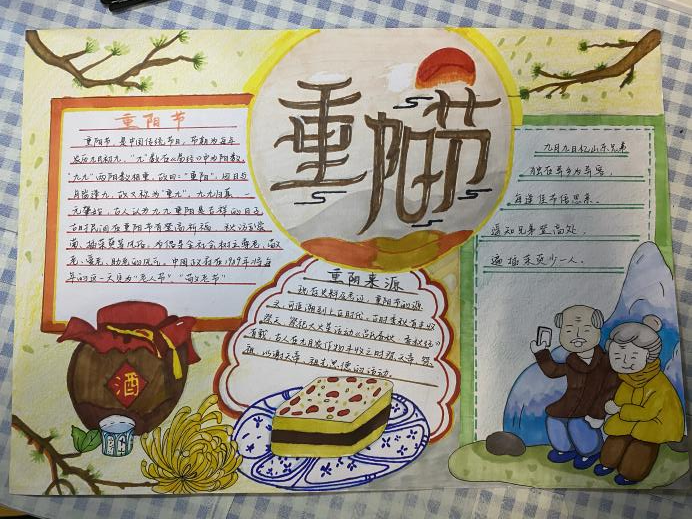 重阳节
重阳节
重阳节，是中国传统节日，节期为每年
农历九月初九。"九"数在《易经》中为阳数，
"九九"两阳数相重，故曰："重阳"，因日与
月皆逢九，故又称为"重九"。九九归真，一
元肇始，古人认为九九重阳是吉祥的日子。
古时民间在重阳节有登高祈福、秋游赏
菊、插茱萸等风俗。为倡导全社会树立尊老、敬
老、爱老、助老的风气，中国政府在1989年将每
年的这一天定为"老人节""敬老节"
重阳来源
现在史料及考证，重阳节的源
头，可追溯到上古时代，古时季秋有丰收
祭天、祭祀大火星活动《吕氏春秋·季秋纪》
有载，古人在九月农作物丰收之时祭天帝、祭
祖，以谢天帝、祖先恩德的活动。
九月九日忆山东兄弟
独在异乡为异客，
每逢佳节倍思亲。
遥知兄弟登高处，
遍插茱萸少一人。
酒